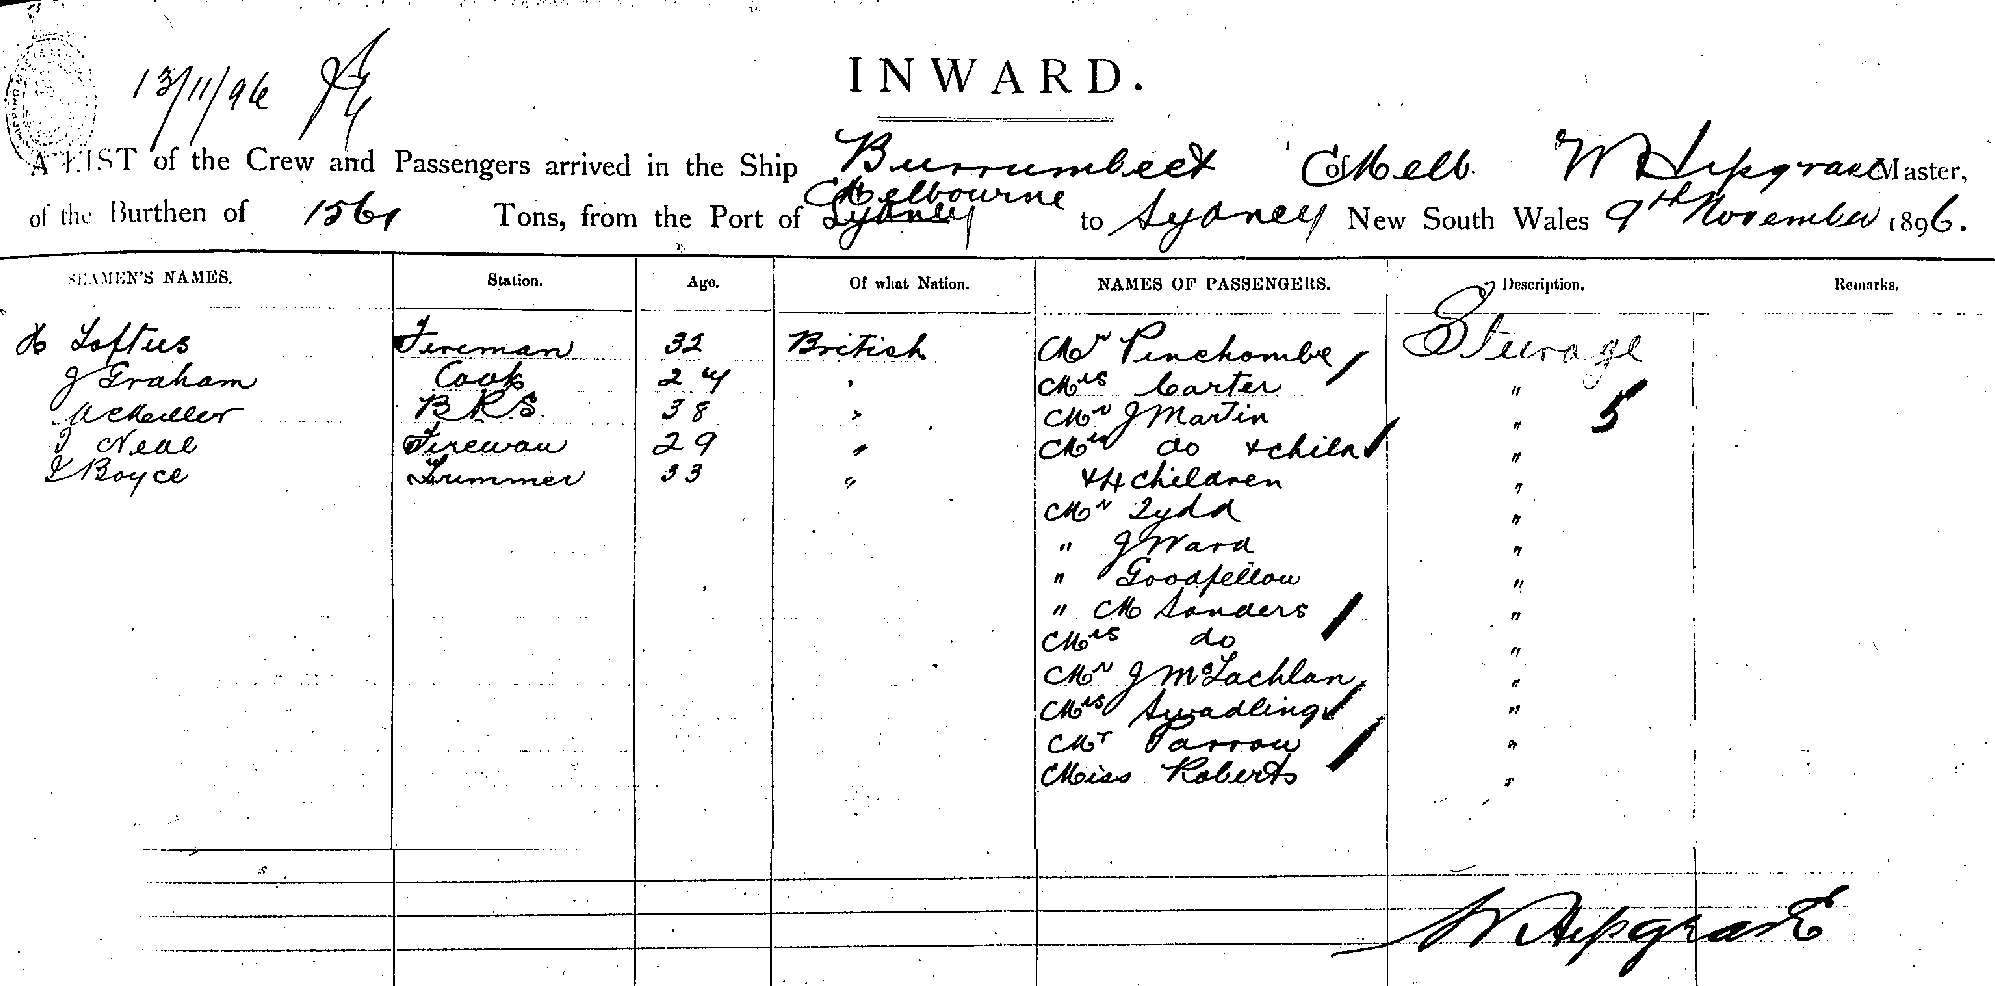 13/11/96
INWARD.
A LIST of the Crew and Passengers arrived in the Ship Burrumbeet of Melb. W Hipgrave Master,
of the Burthen of 1561 Tons, from the Port of Sydney Melbourne to Sydney New South Wales 9th November 1896.
SEAMEN'S NAMES. Station. Age. Of what Nation. NAMES OF PASSENGERS. Description. Remarks.
H Loftus Fireman 32 British Mr Pinchombe Sturage
J Graham Cook 24 " Mrs Carter "
McKellor B.R.S. 38 " Mr J Martin " 5
J Neal Fireman 29 " Mrs do + child "
J Boyce Trimmer 33 " + 4 children "
Mr Lydd "
" J Ward "
" Goodfellow "
" M Sanders "
Mrs do "
Mr J McLachlan "
Mrs Swadling "
Mr Parrow "
Miss Roberts "
W Hipgrave